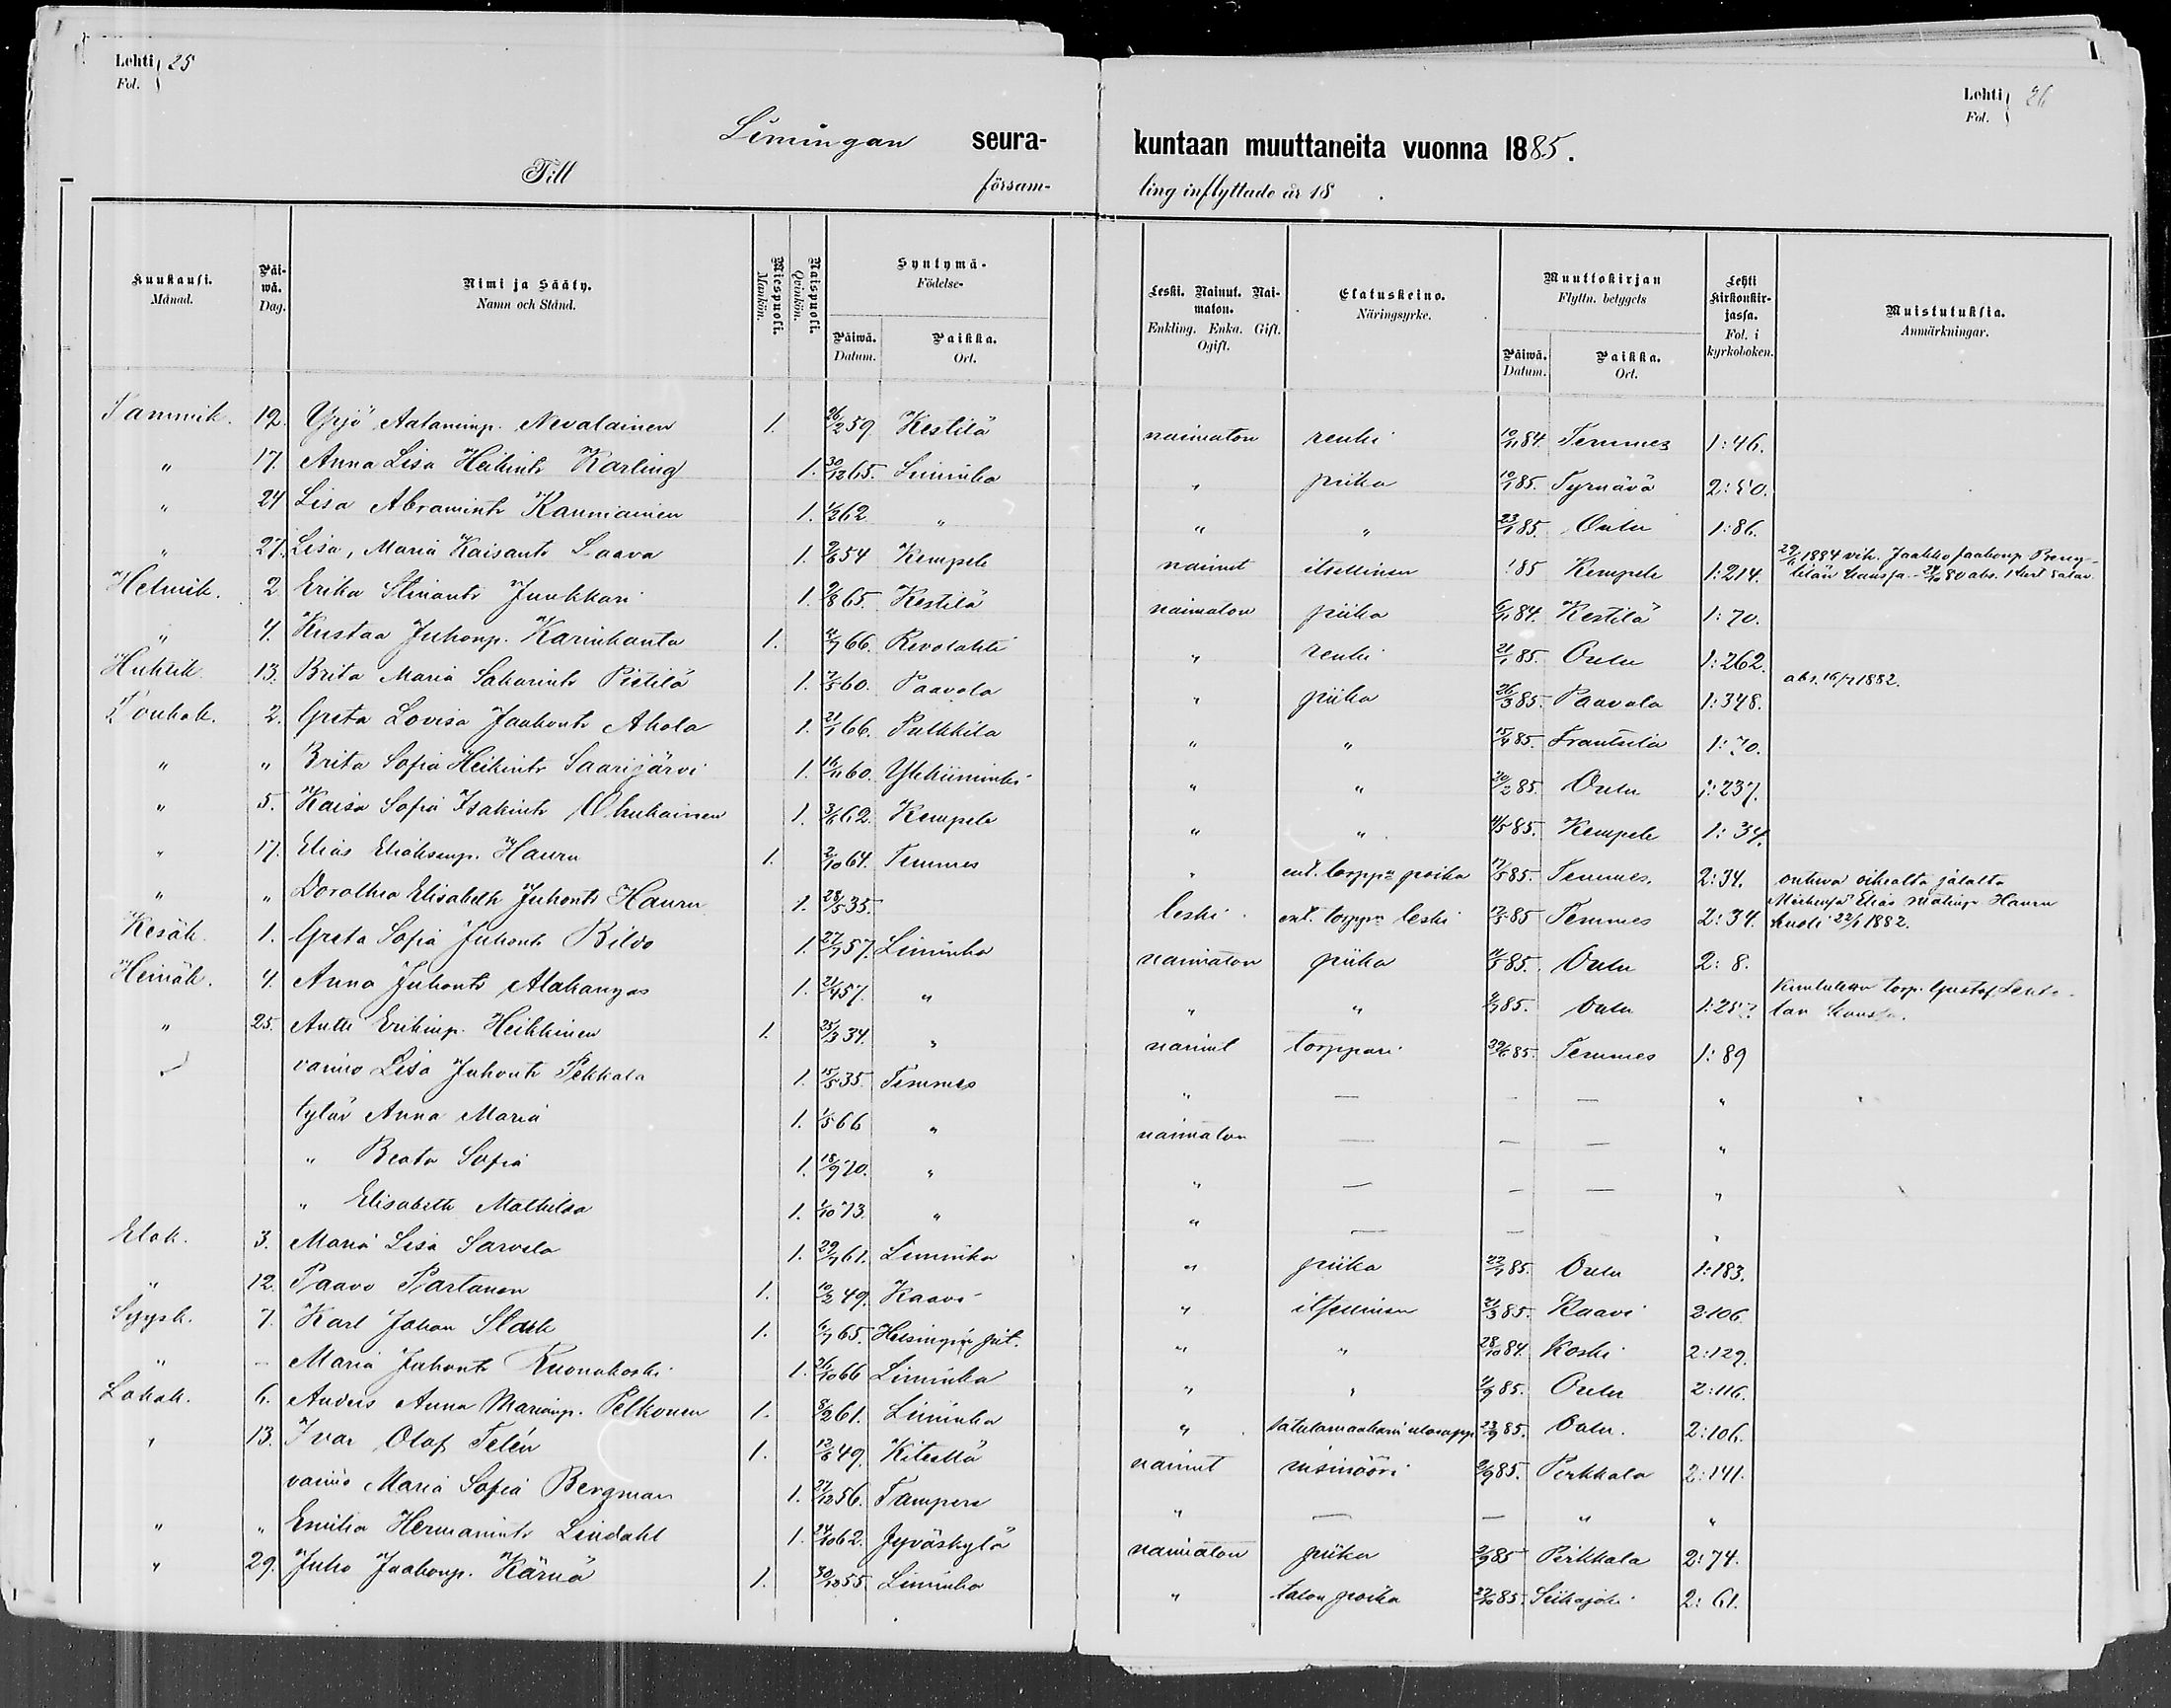 Lehti 25
Fol.
Lehti 26
Fol.
Limingan seura- kuntaan muuttaneita vuonna 1885.
Till försam- ling inflyttade år 18 .
Kuukausi. Månad. Päi-wä. Dag. Nimi ja Sääty. Namn och Stånd. Miespuoli. Mankön. Naispuoli. Qvinkön. Syntymä- Födelse- Päiwä. Datum. Paikka. Ort. Leski. Nainut. Nai-maton. Enkling. Enka. Gift. Ogift. Elatuskeino. Näringsyrke. Muuttokirjan Flyttn. betygets Päiwä. Datum. Paikka. Ort. Lehti Kirkonkir-jassa. Fol. i kyrkoboken. Muistutuksia. Anmärkningar.
Tammik. 12. Yrjö Aataminp. Nevalainen 1. 26/2 59. Kestilä naimaton renki 10/11 84. Temmes 1:46.
" 17. Anna Lisa Heikintr Karling 1. 30/12 65. Liminka " piika 10/1 85. Tyrnävä 2:50.
" 24 Lisa Abramintr Kauniainen 1. 62. " " " 23/1 85. Oulu 1:86.
" 27. Lisa, Maria Kaisantr Laava 1. 54 Kempele nainut itsellinen 85 Kempele 1:214. 1884 vih. Jaakko Jaakonp.
Helmik. 2 Erika Stinantr Junkkari 1. 2/8 65. Kestilä naimaton piika 84. Kestilä 1:70.
" 4. Kustaa Juhonp. Karinkanta 1. 66. Revolahti " renki 21/1 85. Oulu 1:262.
Huhtik. 13. Brita Maria Sakarintr Pietilä 1. 60. Paavola " piika 26/3 85. Paavola 1:348. abs. 1882.
Toukok. 2. Greta Lovisa Jaakontr Ahola 1. 21/1 66. Pulkkila " " 15/4 85. Frantsila 1:70.
" " Brita Sofia Heikintr Saarijärvi 1. 16/11 60. Ylikiiminki " " 85. Oulu 1:237.
" 5. Kaisa Sofia Isakintr 1. 3/6 62. Kempele " " 85. Kempele 1:34.
" 17. Elias Eliaksenp. Hauru 1. 2/10 64. Temmes " ent. torpp:n poika 17/5 85. Temmes. 2:34. ontuva oikealta jalalta
" " Dorothea Elisabeth Juhontr Hauru 1. 28/5 35. leski ent. torpp:n leski 17/5 85 Temmes 2:34. Miehensä Elias Hauru kuoli 1882.
Kesäk. 1. Greta Sofia Juhontr Bildo 1. 57. Liminka naimaton piika 85. Oulu 2:8.
Heinäk. 4. Anna Juhontr Alakangas 1. 57. " " " 85. Oulu Kuulutettu torp. Gustaf kanssa.
" 25. Antti Erikinp. Heikkinen 1. 25/3 34. " nainut torppari 85. Temmes 1:89
vaimo Lisa Juhontr Pekkala 1. 15/5 35 Temmes " — — — "
tytär Anna Maria 1. 1/5 66 " naimaton — — — "
" Beata Sofia 1. 18/9 70. " " — — — "
" Elisabeth Mathilda 1. 1/10 73. " " — — "
Elok. 3. Maria Lisa Sarvela 1. 61. Liminka " piika 85. Oulu 1:183.
" 12. Paavo Partanen 1. 49. Kaavi " itsellinen 85. Kaavi 2:106.
Syysk. 7. Karl Johan 1. 65. Helsingin pit. " " 28/10 84. Koski 2:129.
" — Maria Juhontr Kuonakoski 1. 26/10 66 Liminka " " 85. Oulu 2:116.
Lokak. 6. Anders Anna Marianp. Pelkonen 1. 8/2 61. Liminka " 23/9 85. Oulu. 2:106.
" 13. Ivar Olof Telén 1. 49. Kiteeltä nainut insinööri 85. Pirkkala 2:141.
vaimo Maria Sofia Bergman 1. 56. Tampere " — — " "
" " Emilia Hermanintr Lindahl 1. 24/10 62. Jyväskylä naimaton piika 85 Pirkkala 2:74.
" 29. Juho Jaakonp. Kärnä 1. 55 Liminka " talon poika 85. Siikajoki 2:61.